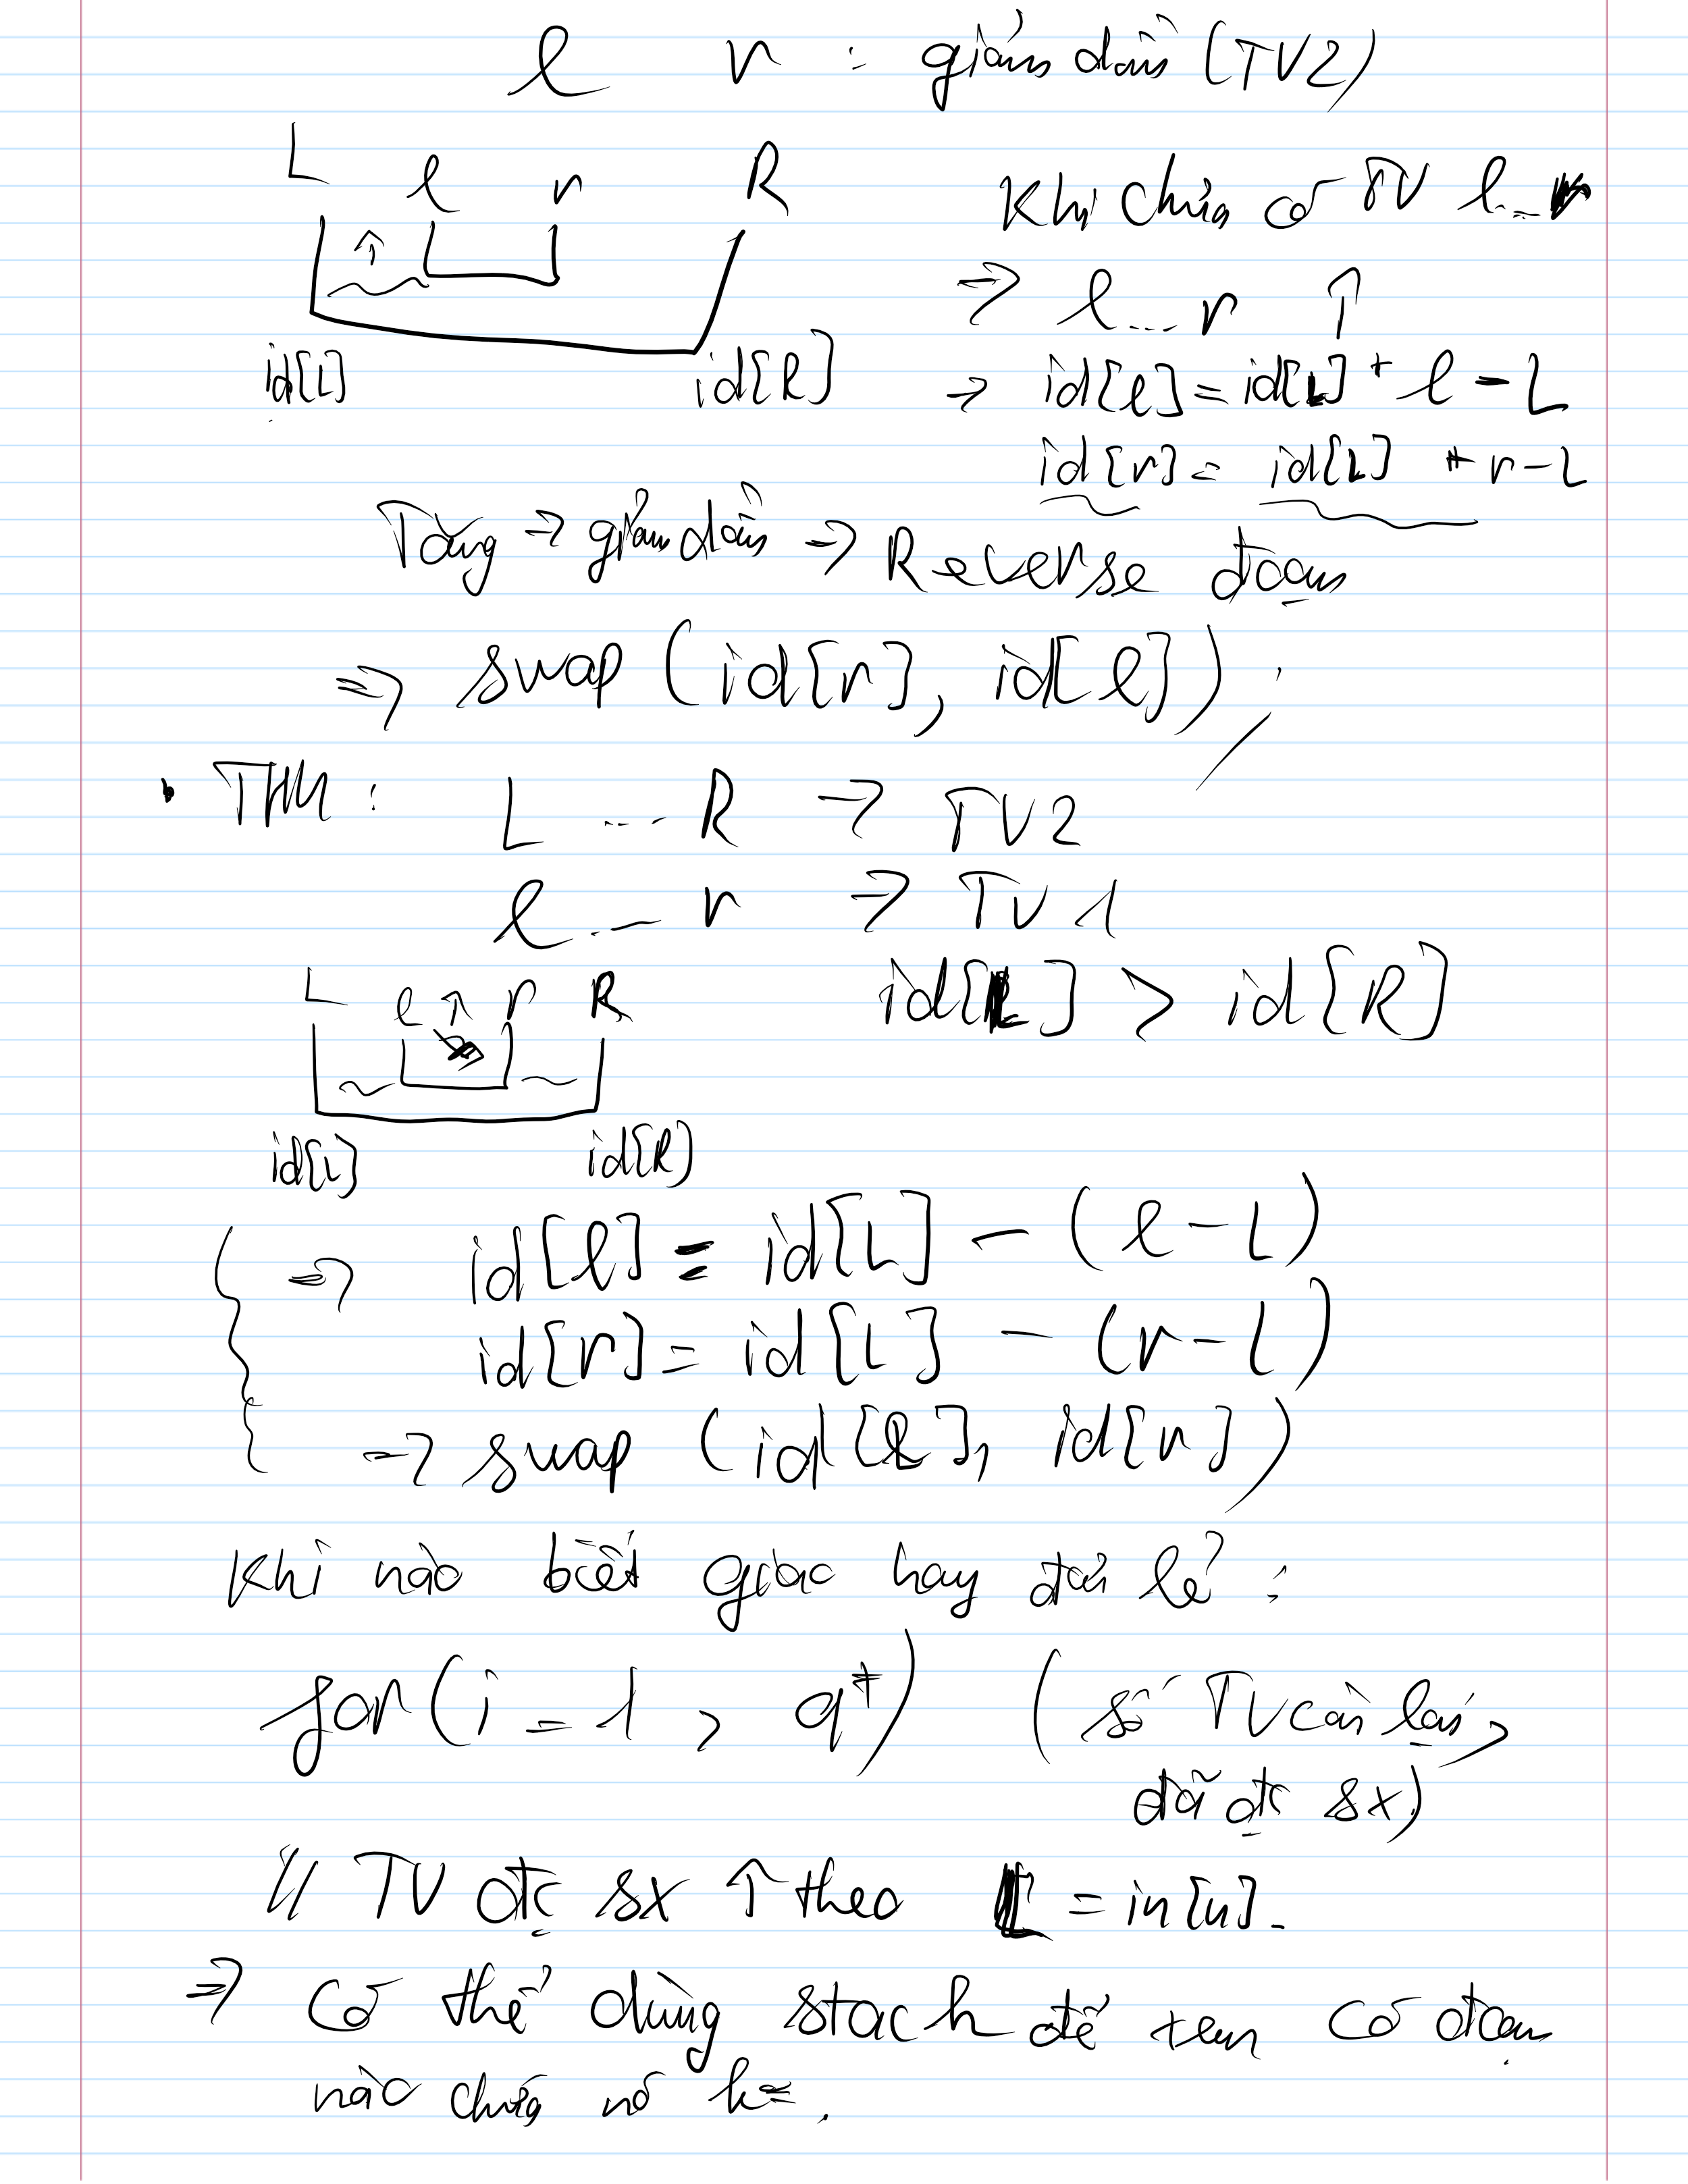 l r : giảm dần (TV2)
L l r R
Khi chưa có TV l...r
⇒ l...r ↑
id[L] id[R]
⇒ id[l] = id[L] + l - L
id[r] = id[L] + r - L
Tăng ⇒ giảm dần ⇒ Reverse đoạn
⇒ swap (id[r], id[l]);
• TH1: L ... R → TV2
l ... r → TV1
L l r R
id[L] > id[R]
id[L] id[R]
⇒ id[l] = id[L] - (l - L)
id[r] = id[L] - (r - L)
→ swap (id[l], id[r])
Khi nào biết giao hay đơn lẻ :
for (i = 1, q*) (số TV còn lại,
đã đc sx)
// TV đc sx ↑ theo L = in[u].
⇒ Có thể dùng stack để xem có đoạn
nào chứa nó k=.